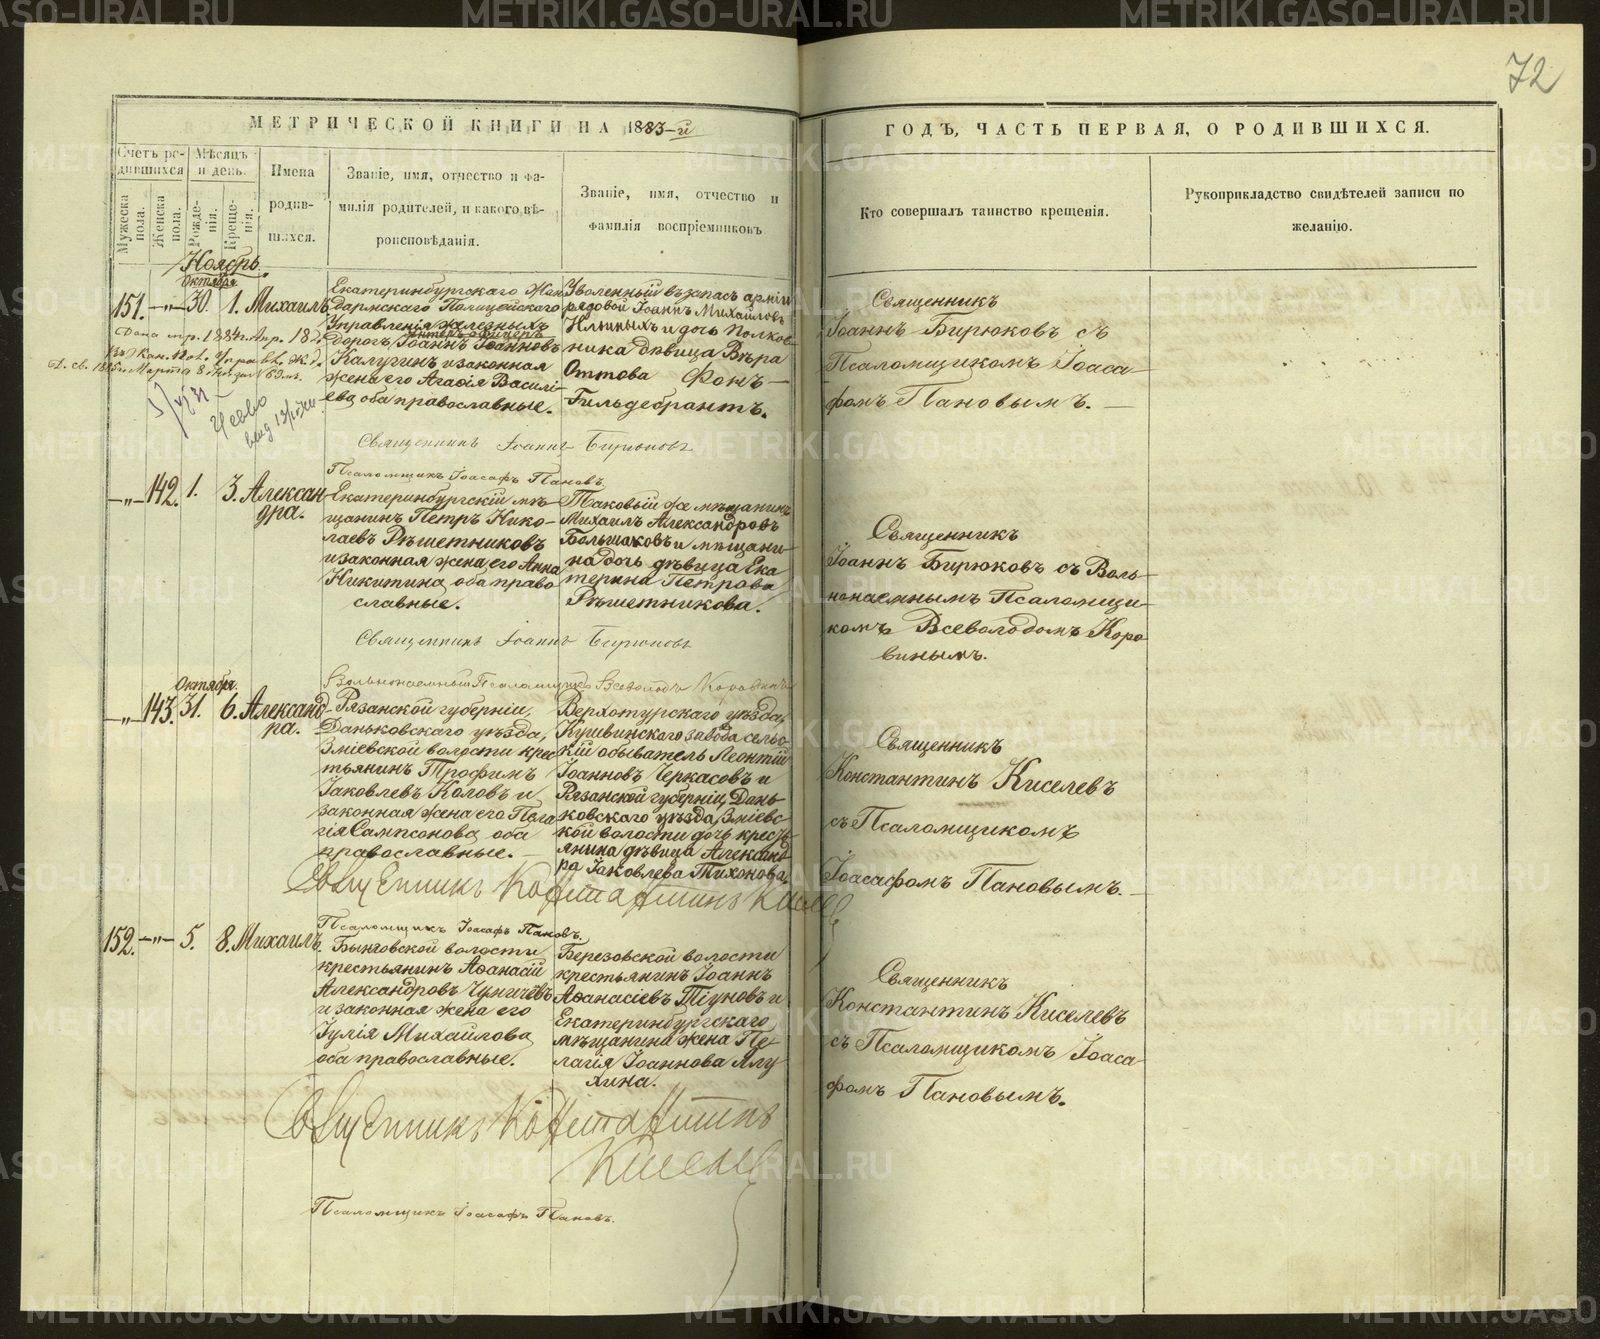 72
МЕТРИЧЕСКОЙ КНИГИ НА 1883-й
ГОДЪ, ЧАСТЬ ПЕРВАЯ, О РОДИВШИХСЯ.
Счетъ родившихся
Мужеска пола.
Женска пола.
Мѣсяцъ и день.
Рожденія.
Крещенія.
Имена родившихся.
Званіе, имя, отчество и фамилія родителей, и какого вѣроисповѣданія.
Званіе, имя, отчество и фамилія воспріемниковъ
Кто совершалъ таинство крещенія.
Рукоприкладство свидѣтелей записи по желанію.
Ноябрь.
Октября
151. —"— 30. 1. Михаилъ
Екатеринбургскаго Жан
дармскаго Полицейскаго
Управленія железныхъ
унтеръ офицеръ
Дорогъ, Іоаннъ Іоанновъ
Калугинъ и законная
жена его Агафія Василі-
ева, оба православные.
Уволенный въ запасъ арміи
рядовой Іоаннъ Михайловъ
Ильиныхъ и дочь Полков-
ника дѣвица Вѣра
Оттова Фонъ—
Гильдебрантъ.
Священникъ
Іоаннъ Бирюковъ съ
Псаломщикомъ Іоаса-
фомъ Пановымъ. —
Священникъ Іоаннъ Бирюковъ
Псаломщикъ Іоасафъ Пановъ
—"— 142. 1. 3. Алексан
дра.
Екатеринбургскій мѣ-
щанинъ Петръ Нико-
лаевъ Рѣшетниковъ
и законная жена его Анна
Никитина, оба право
славные.
Таковый же мѣщанинъ
Михаилъ Александровъ
Большаковъ и мѣщани-
на дочь дѣвица Ека
терина Петрова
Рѣшетникова.
Священникъ
Іоаннъ Бирюковъ съ Воль-
нонаемнымъ Псаломщи-
комъ Всеволодомъ Коро
винымъ.
Священникъ Іоаннъ Бирюковъ
Вольнонаемный Псаломщикъ Всеволодъ Коровинъ
Октября.
—"— 143. 31. 6. Александ
ра.
Рязанской губерніи,
Даньковскаго уѣзда,
Зміевской волости крес
тьянинъ Трофимъ
Іаковлевъ Коловъ и
законная жена его Пела
гія Сампсонова, оба
православные. —
Верхотурскаго уѣзда,
Кушвинскаго завода сельс
кій обыватель Леонтій
Іоанновъ Черкасовъ и
Рязанской губерніи, Дань-
ковскаго уѣзда, Зміевс-
кой волости дочь кресть
янина дѣвица Александ
ра Іаковлева Тихонова.
Священникъ
Константинъ Киселевъ
съ Псаломщикомъ
Іоасафомъ Пановымъ. —
Священникъ Константинъ Киселев
Псаломщикъ Іоасафъ Пановъ.
152. —"— 5. 8. Михаилъ.
Бынговской волости
крестьянинъ Аѳанасій
Александровъ Чуничевъ
и законная жена его
Іулія Михайлова
оба православные.
Березовской волости
крестьянинъ Іоаннъ
Аѳанасіевъ Тіуновъ и
Екатеринбургскаго
мѣщанина жена Пе-
лагія Іоаннова Ялу
хина.
Священникъ
Константинъ Киселевъ
съ Псаломщикомъ Іоаса-
фомъ Пановымъ.
Священникъ Константинъ
Киселев
Псаломщикъ Іоасафъ Пановъ.
METRIKI.GASO-URAL.RU